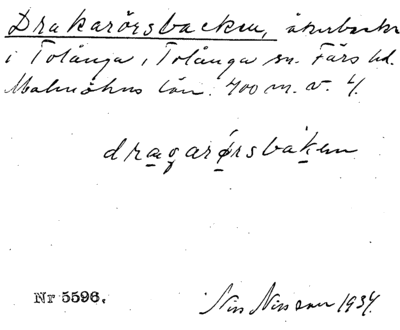 Drakarörsbacken, åkerbacke
i Tolånga, Tolånga sn. Färs hd.
Malmöhus län. 700 m. v. 4.
dragarørsbakεn
Nr 5596.
Nils Nilsson 1934.